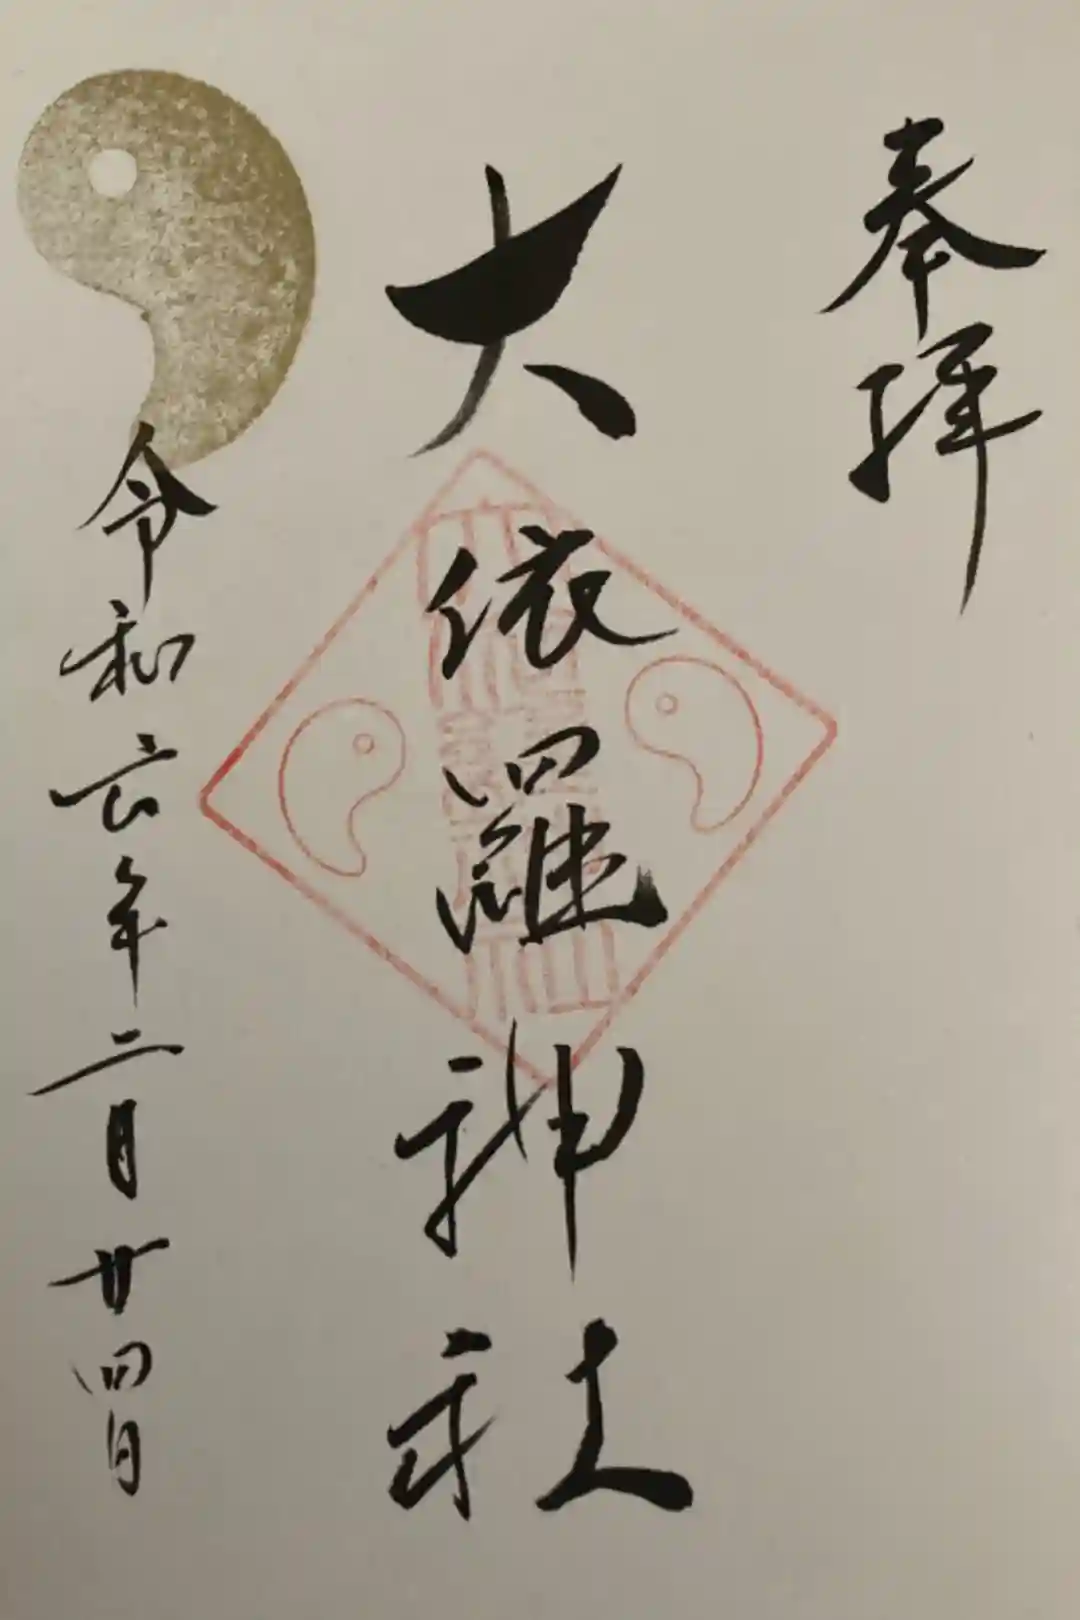 奉拝
大依羅神社
令和六年二月廿四日